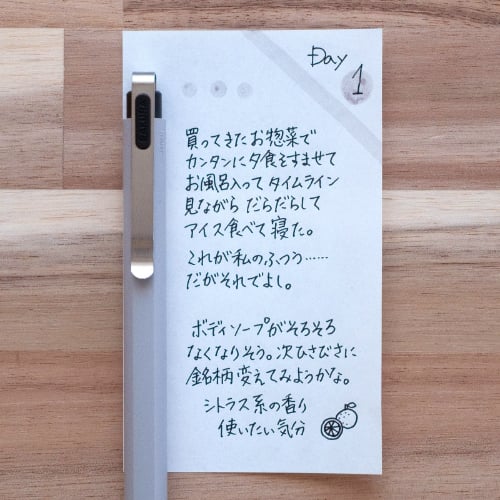 Day
1
買ってきたお惣菜で
カンタンに夕食をすませて
お風呂入ってタイムライン
見ながらだらだらして
アイス食べて寝た。
これが私のふつう……
だがそれでよし。
ボディソープがそろそろ
なくなりそう。次ひさびさに
銘柄変えてみようかな。
シトラス系の香り
使いたい気分